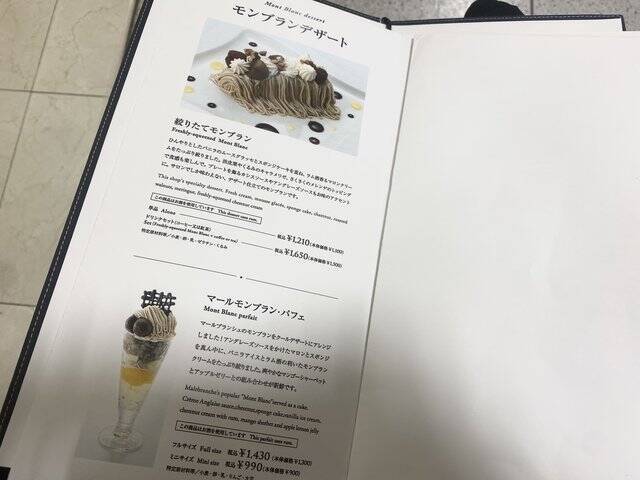 Mont Blanc dessert
モンブランデザート
絞りたてモンブラン
Freshly-squeezed Mont Blanc
ひんやりとしたバニラのムースグラッセとスポンジケーキを重ね、ラム酒香るマロンクリー
ムをたっぷり絞りました。渋皮栗やくるみのキャラメリゼ、さくさくのメレンゲのトッピング
で食感も楽しんで。プレートを飾るカシスソースやアングレーズソースもお味のアクセント
に。サロンでしか味わえない、デザート仕立てのモンブランです。
This shop's specialty dessert. Fresh cream, mousse glacée, sponge cake, chestnut, roasted
walnuts, meringue, freshly-squeezed chestnut cream
この商品はお酒を使用しています This dessert uses rum.
単品 Alone 税込¥1,210(本体価格¥1,100)
ドリンクセット(コーヒー又は紅茶)
Set (Freshly-squeezed Mont Blanc + coffee or tea) 税込¥1,650(本体価格¥1,500)
特定原材料等/小麦・卵・乳・ゼラチン・くるみ
マールモンブラン・パフェ
Mont Blanc parfait
マールブランシュのモンブランをクールデザートにアレンジ
しました!アングレーズソースをかけたマロンとスポンジ
を真ん中に、バニラアイスとラム酒の利いたモンブラン
クリームをたっぷり絞りました。爽やかなマンゴーシャーベット
とアップルゼリーとの組み合わせが新鮮です。
Malebranche's popular "Mont Blanc"served as a cake.
Crème Anglaise sauce,chestnut,sponge cake,vanilla ice cream,
chestnut cream with rum, mango sherbet and apple lemon jelly
この商品はお酒を使用しています This parfait uses rum.
フルサイズ Full size 税込¥1,430(本体価格¥1,300)
ミニサイズ Mini size 税込¥990(本体価格¥900)
特定原材料等/小麦・卵・乳・りんご・大豆